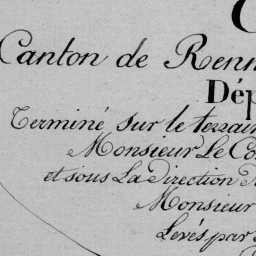 C
Canton de Renn
Dép
Terminé sur le terrain
Monsieur Le Co
et sous La Direction
Monsieur
Levés par